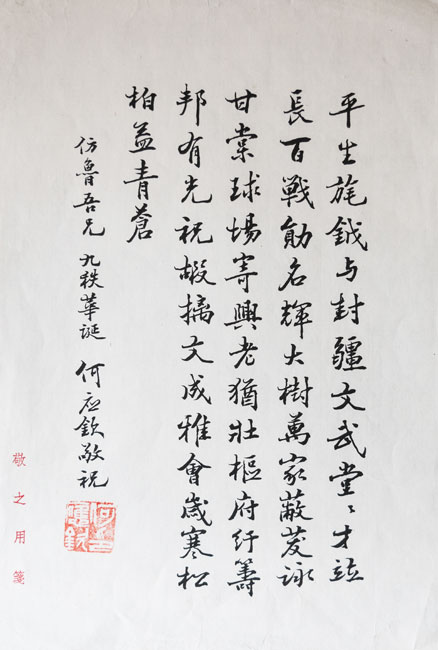 平生旄鉞与封疆文武堂〻才竝
長百戦勛名輝大樹萬家蔽茇詠
甘棠球場寄興老猶壯樞府紆籌
邦有光祝嘏摛文成雅會歲寒松
柏益青蒼
仿魯吾兄 九秩華誕 何应欽敬祝
敬之用箋